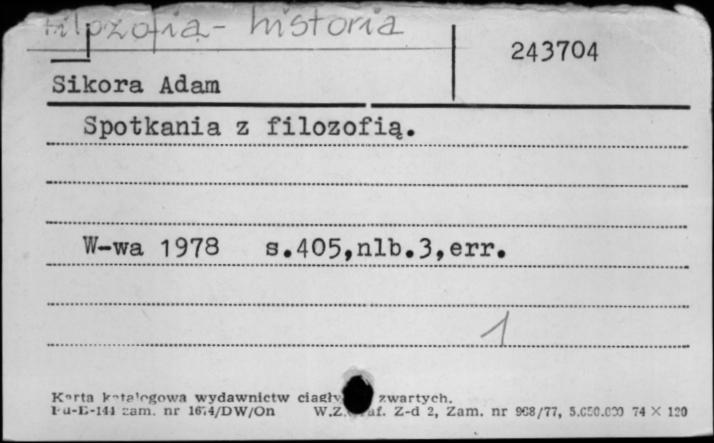 filozofia - historia
243704
Sikora Adam
Spotkania z filozofią.
W-wa 1978 s.405,nlb.3,err.
1
Karta katalogowa wydawnictw zwartych.
Pu-E-144 zam. nr 1674/DW/On W.Z. Z-d 2, Zam. nr 968/77, 5.050.000 74 × 120